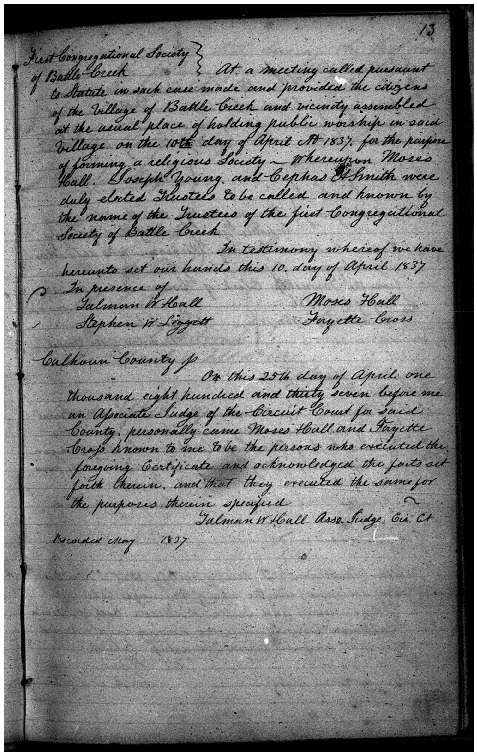 13
First Congregational Society
of Battle Creek } At a meeting called pursuant
to Statute in such case made and provided the citizens
of the Village of Battle Creek and vicinity assembled
at the usual place of holding public worship in said
Village on the 10th day of April AD 1837. for the purpose
of forming a religious Society – Whereupon Moses
Hall. Joseph Young and Cephas A Smith were
duly elected Trustees to be called and known by
the name of the Trustees of the first Congregational
Society of Battle Creek
In testimony whereof we have
hereunto set our hands this 10. day of April 1837
In presence of
Talman W Hall Moses Hall
Stephen W Fayette Cross
Calhoun County ss
On this 25th day of April one
thousand eight hundred and thirty seven before me
an Associate Judge of the Circuit Court for said
County. personally came Moses Hall and Fayette
Cross known to me to be the persons who executed the
foregoing Certificate and acknowledged the facts set
forth therein. and that they executed the same for
the purposes therein specified
Talman W Hall Asso. Judge Cir. Ct
Recorded May 1837